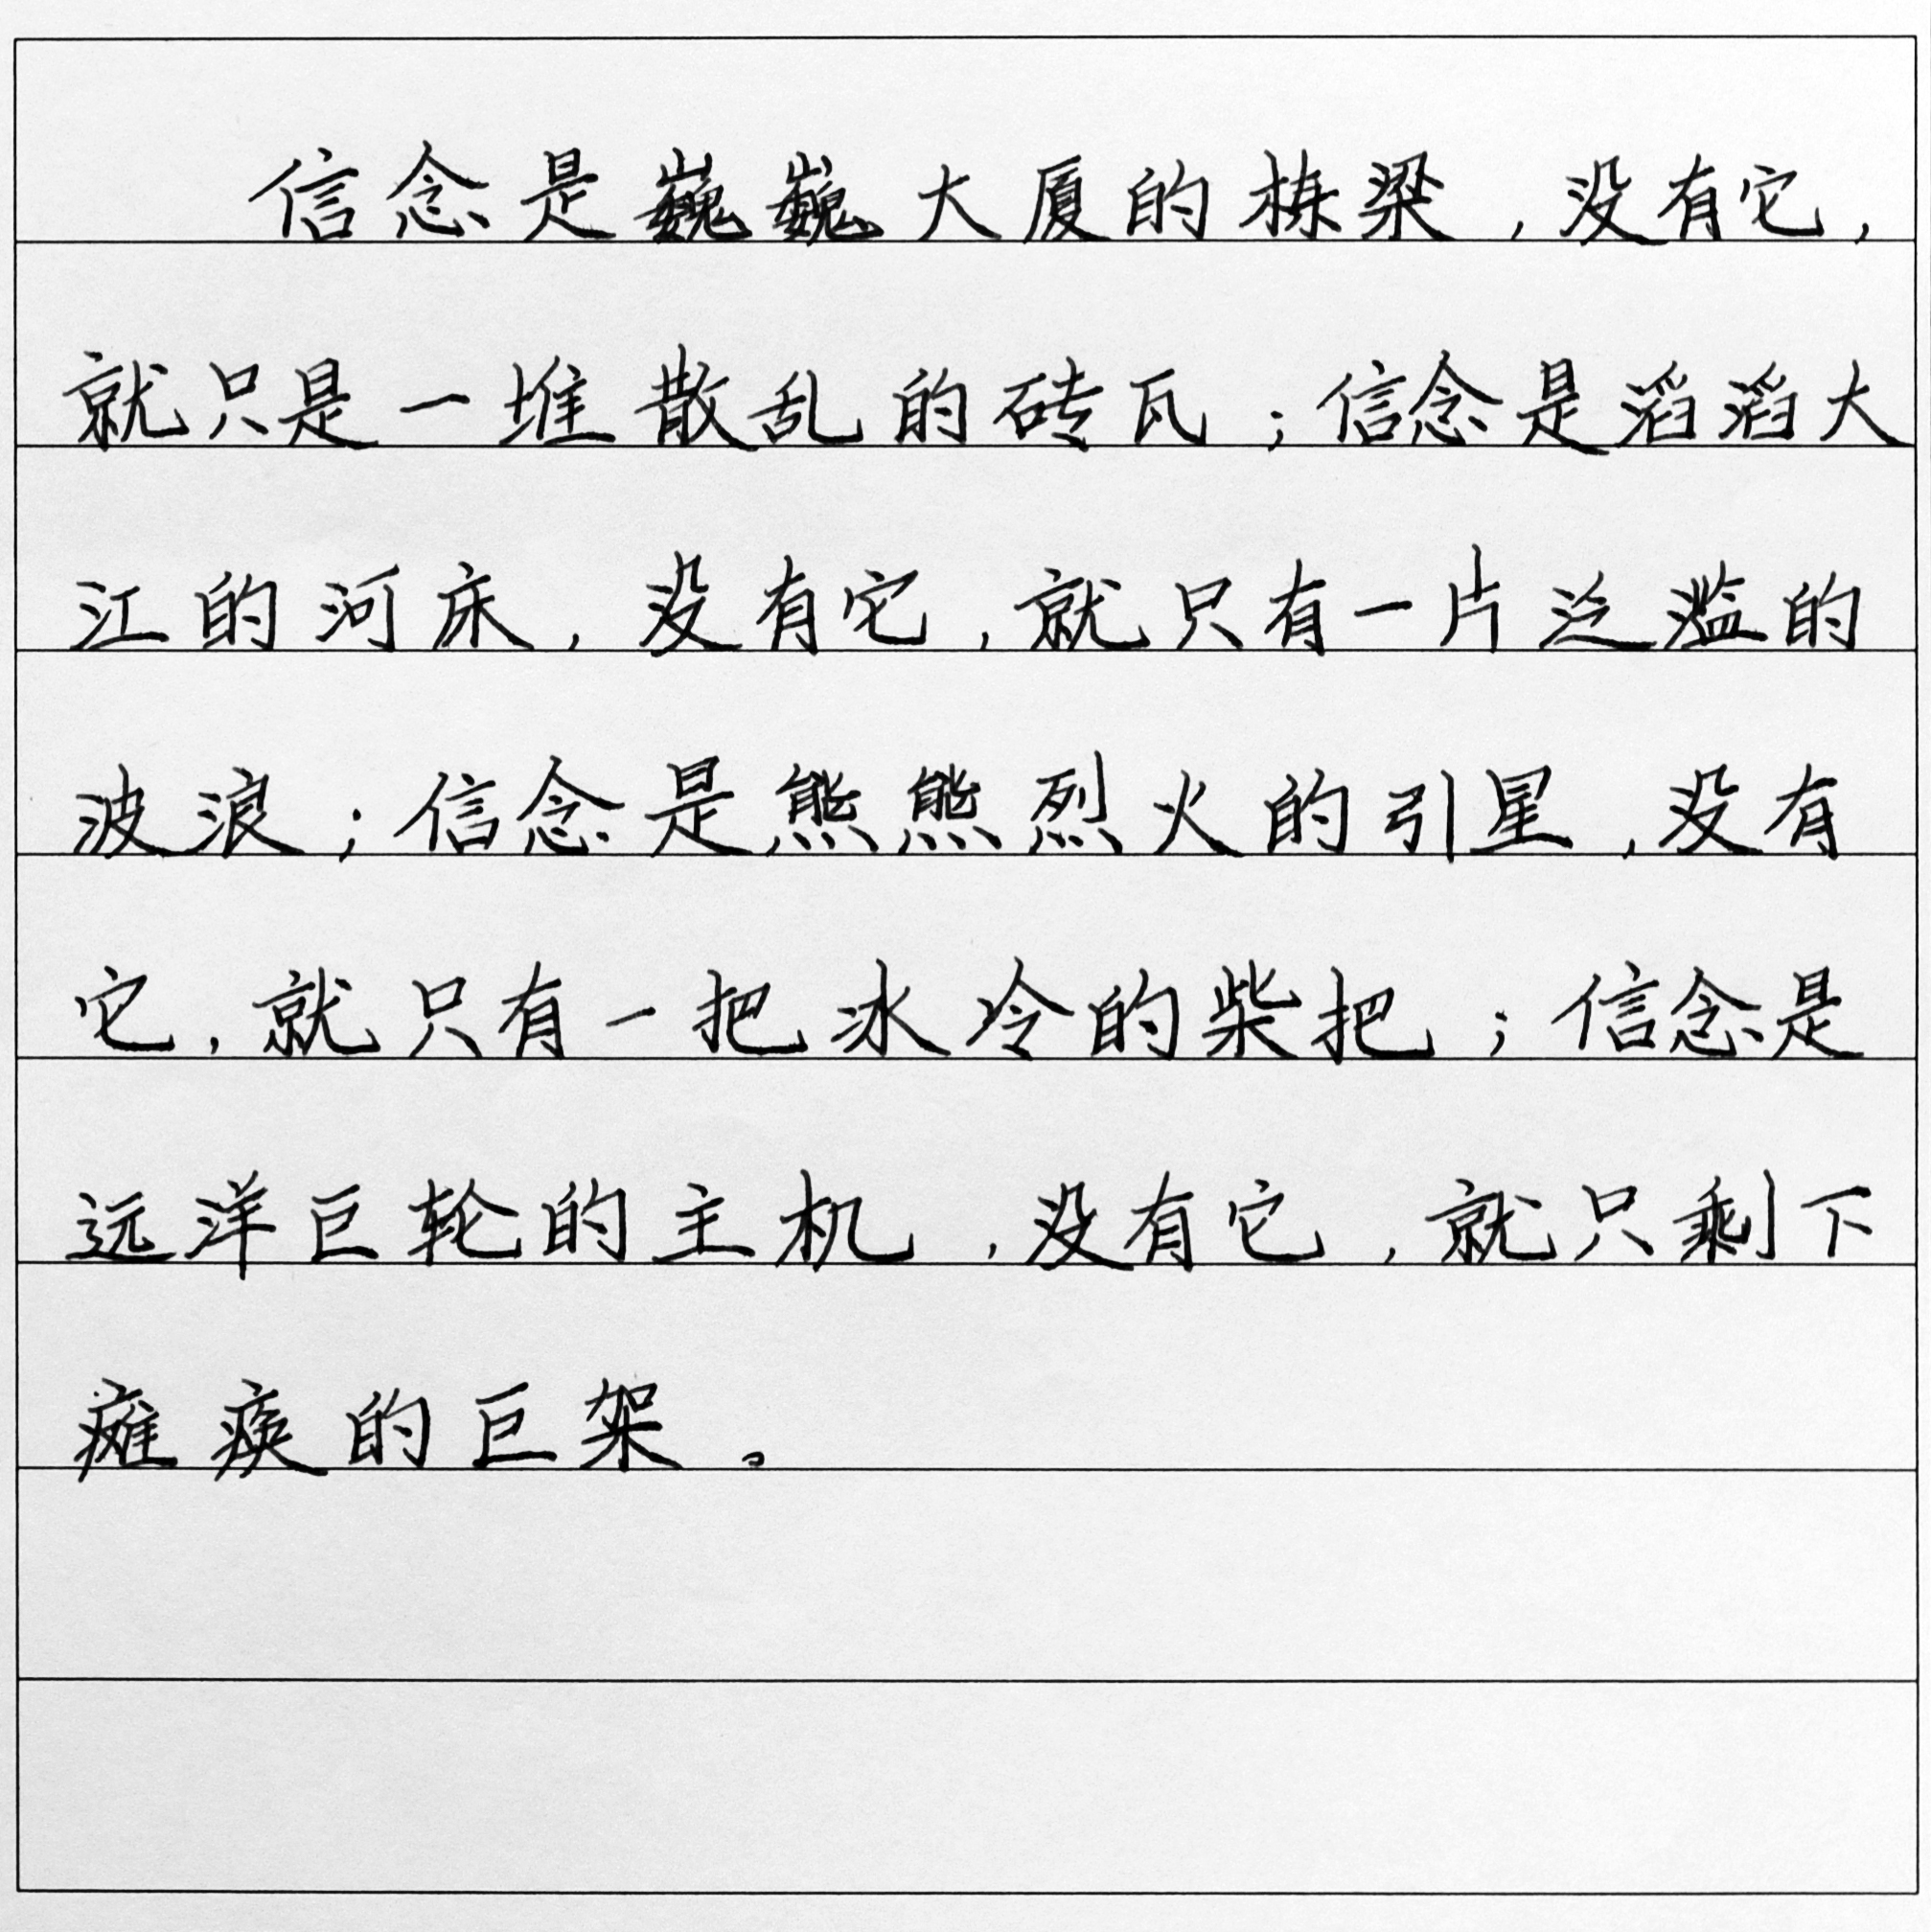 信念是巍巍大厦的栋梁，没有它，
就只是一堆散乱的砖瓦；信念是滔滔大
江的河床，没有它，就只有一片泛滥的
波浪；信念是熊熊烈火的引星，没有
它，就只有一把冰冷的柴把；信念是
远洋巨轮的主机，没有它，就只剩下
瘫痪的巨架。